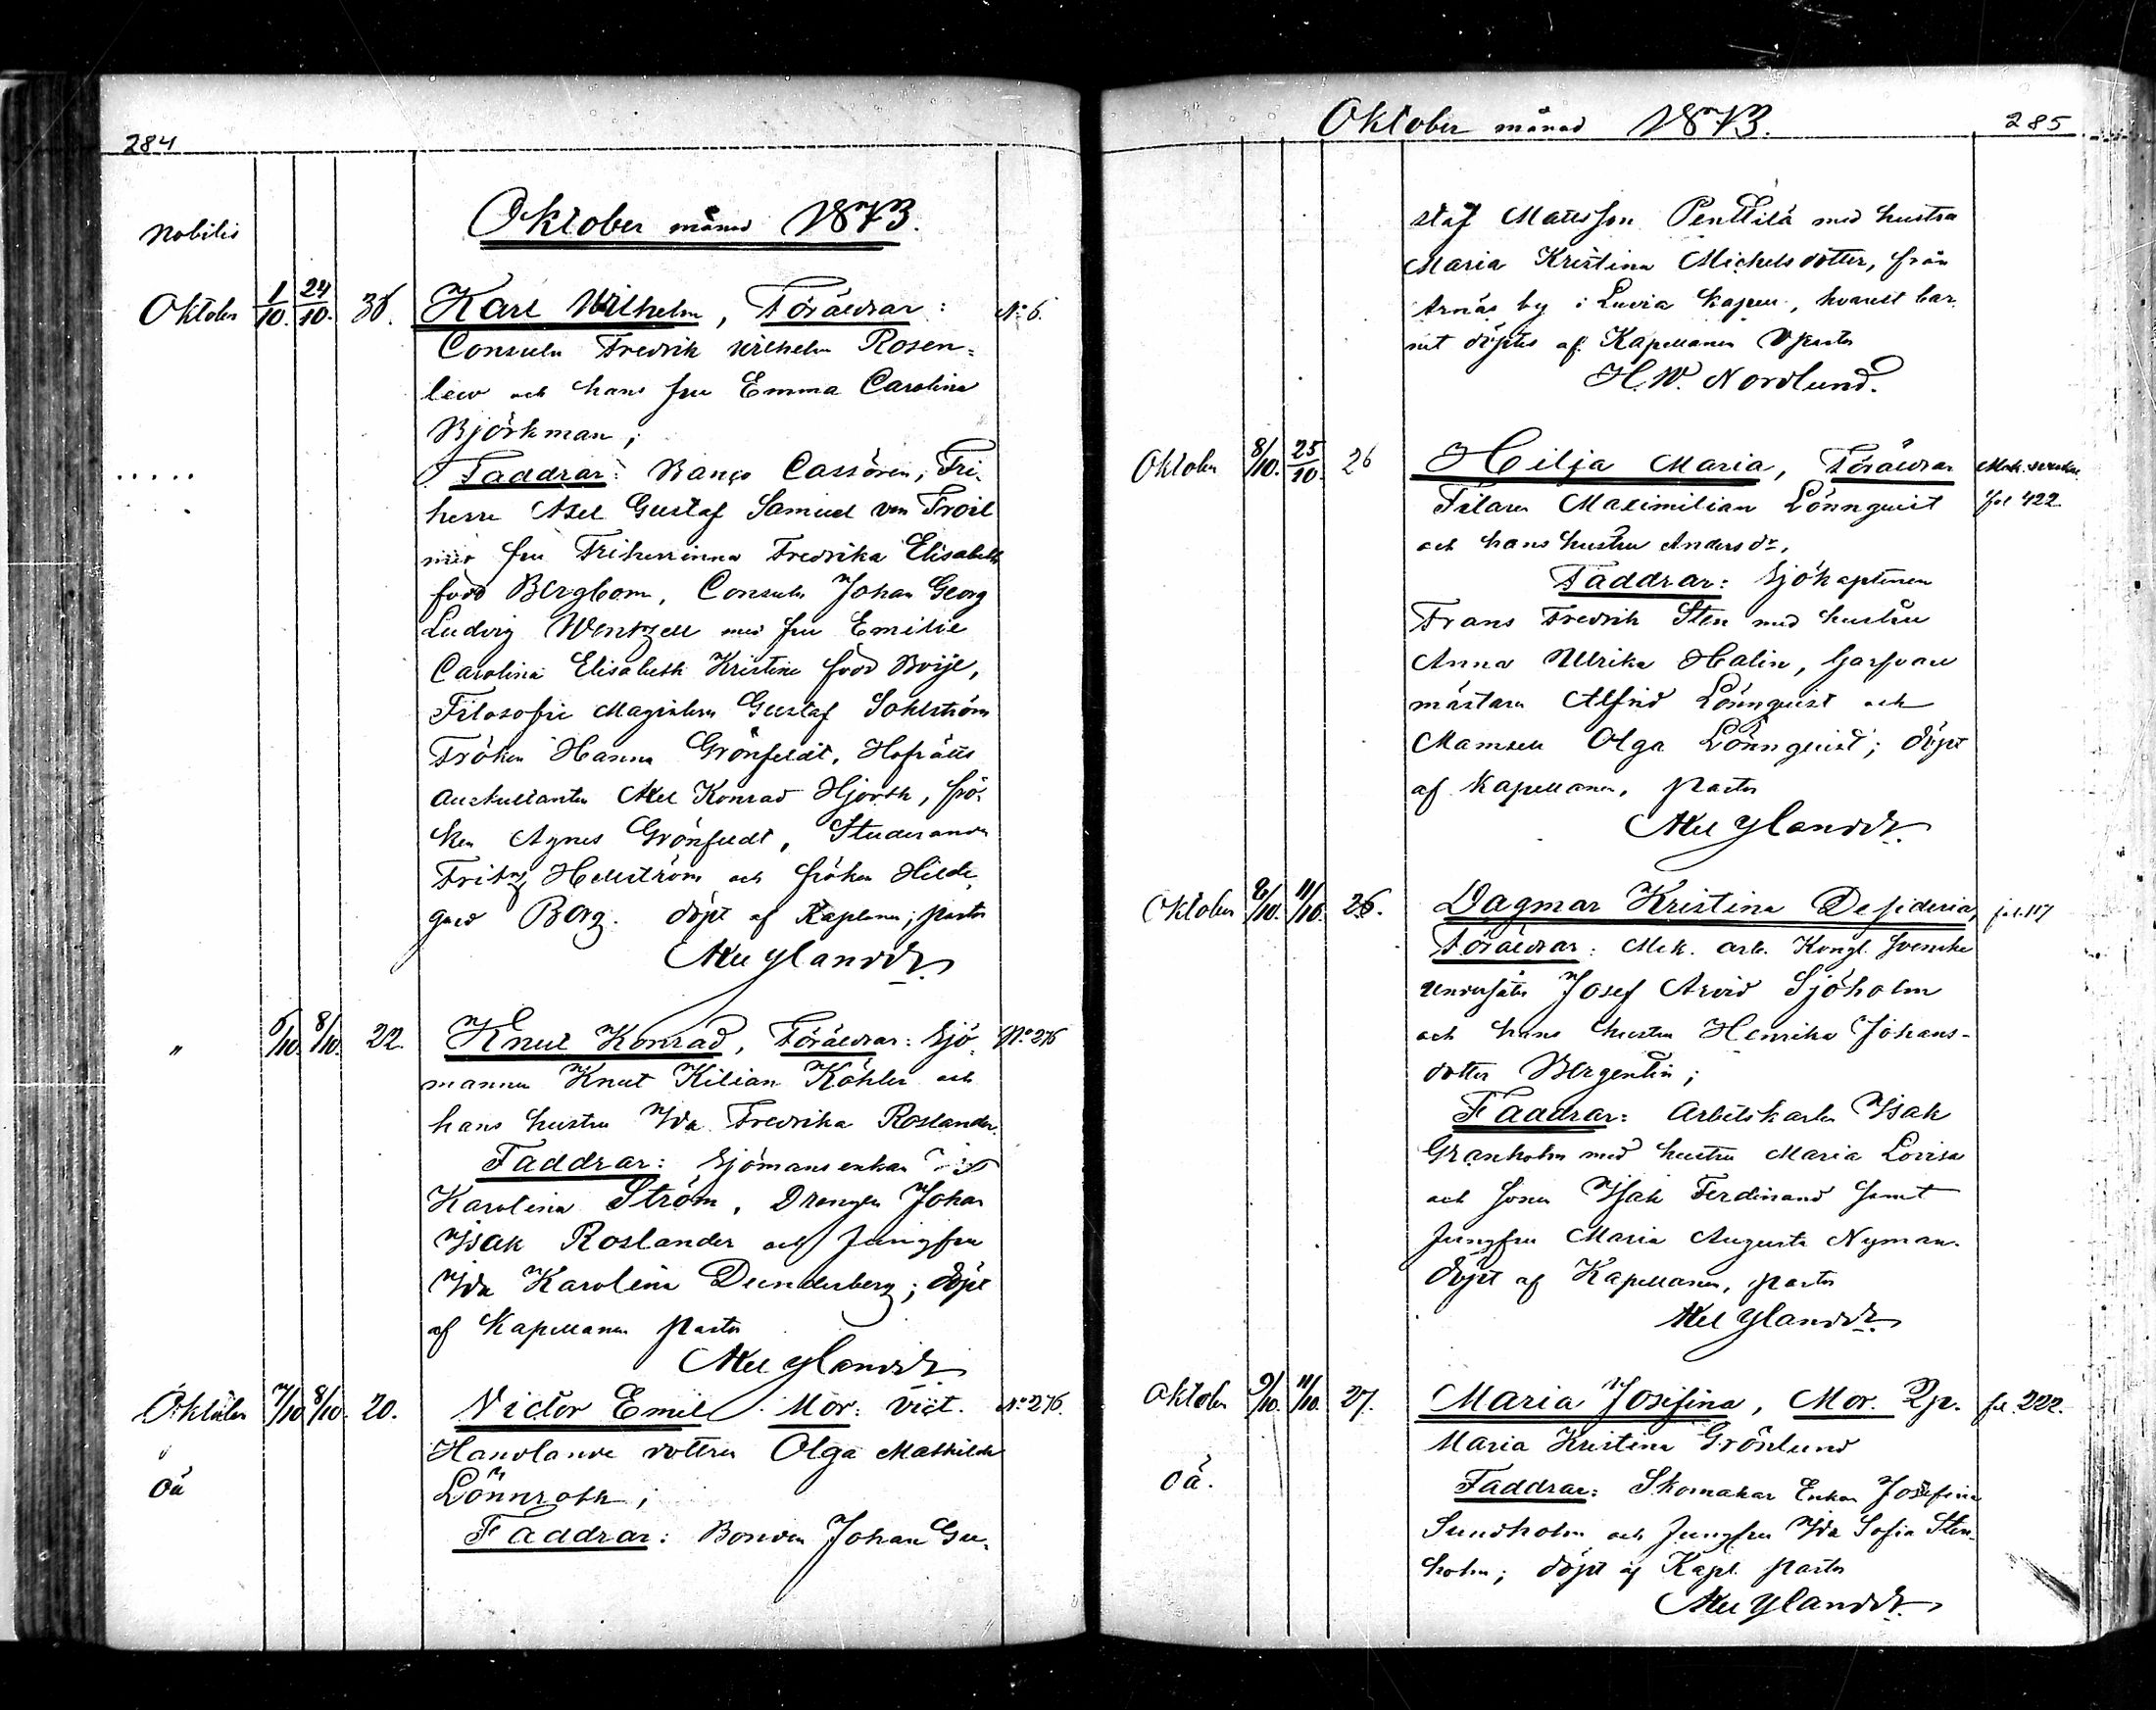 284
Oktober månad 1873.
Nobilis
Oktober 1/10. 24/10. 36. Karl Wilhelm, Föräldrar: No 6.
Consuln Fredrik Wilhelm Rosen=
lew och hans fru Emma Carolina
Björkman;
Faddrar: Cassören, Fri-
herre Axel Gustaf Samuel von Troil
med fru Friherrinna Fredrika Elisabeth
född Bergbom, Consuln Johan Georg
Ludvig Wentzell med fru Emilie
Carolina Elisabeth Kristine född Boije,
Filosofie Magistern Gustaf Sohlström
Fröken Hanna Grönfeldt, Hofrätts
Auskultanten Axel Konrad Hjorth, frö-
ken Agnes Grönfeldt, Studeranden
Fritz Hellström och fröken Hilde-
gard Borg. döpt af Kaplanen, pastor
Axel Ylander
" 5/10. 8/10. 22. Knut Konrad, Föräldrar: Sjö- No 276
mannen Knut Kilian Köhler och
hans hustru Ida Fredrika Roslander.
Faddrar: Sjömans enkan
Karolina Ström, Drengen Johan
Isak Roslander och Jungfru
Ida Karolina Dunderberg; döpt
af Kapellanen pastor
Axel Ylander
Oktober 7/10 8/10. 20. Victor Emil. Mor: Vict. No 276.
oä
Handlande dottren Olga Mathilda
Lönnroth;
Faddrar: Bonden Johan Gu-
Oktober månad 1873. 285
staf Mattsson Penttilä med hustru
Maria Kristina Michelsdotter, från
Arnäs by i Luvia kapell, hvarest bar-
net döptes af Kapellanen Vpastor
H. W. Nordlund.
Oktober 8/10. 25/10. 26 Hilja Maria, Föräldrar
fol 422.
Filaren Maximilian Lönnquist
och hans hustru Anders dr.
Faddrar: Sjökaptenen
Frans Fredrik Sten med hustru
Anna Ulrika Halin, Garfvare
mästaren Alfrid Lönnquist och
Mamsell Olga Lönnquist; döpt
af Kapellanen, pastor
Axel Ylander
Oktober 8/10. 11/10. 26. Dagmar Kristina Desideria, fol. 117
Föräldrar: Mek. arb. Kongl. Svenske
undersåten Josef Arvid Sjöholm
och hans hustru Henrika Johans-
dotter Bergentin;
Faddrar: Arbetskarlen Isak
Granholm med hustru Maria Lovisa
och sonen Isak Ferdinand samt
Jungfru Maria Augusta Nyman.
döpt af Kapellanen, pastor
Axel Ylander
Oktober 9/10. 11/10. 27. Maria Josefina, Mor. Pp. fol. 222.
Maria Kristina Grönlund
oä.
Faddrar: Skomakar Enkan Josefina
Sundholm och Jungfru Ida Sofia Sten-
holm; döpt af Kapl. pastor
Axel Ylander